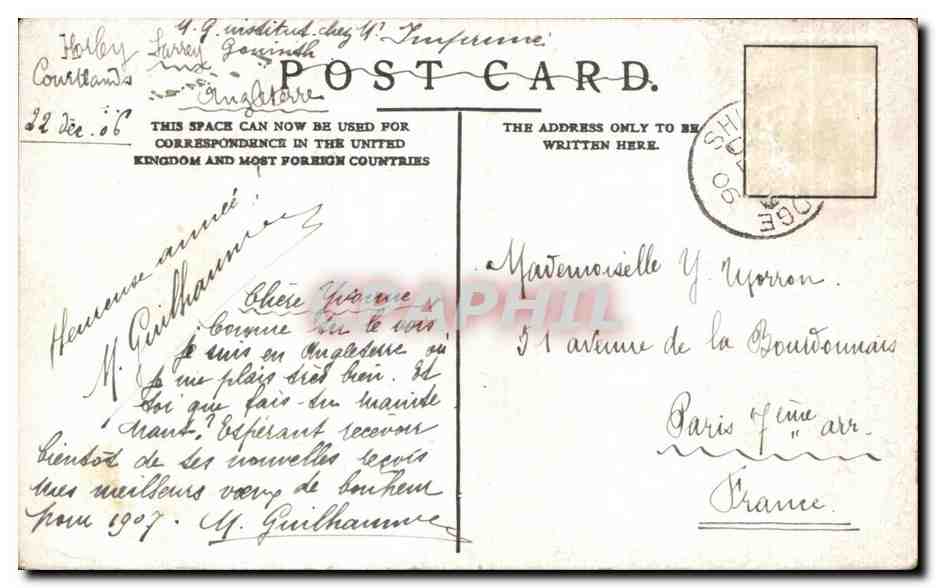 Horley Surrey
Courtlands
Angleterre
22 Déc. 06
POST CARD.
THIS SPACE CAN NOW BE USED FOR
CORRESPONDENCE IN THE UNITED
KINGDOM AND MOST FOREIGN COUNTRIES
THE ADDRESS ONLY TO BE
WRITTEN HERE.
Heureuse année!
M. Guilhaume
Chère Yvonne
Comme tu le vois
je suis en Angleterre où
je me plais très bien. Et
toi que fais-tu mainte
nant? Espérant recevoir
bientôt de tes nouvelles reçois
mes meilleurs vœux de bonheur
pour 1907. M. Guilhaume
Mademoiselle Y. Morron.
31 avenue de la Bourdonnais
Paris 7ème arr.
France.
DELCAMPHIL